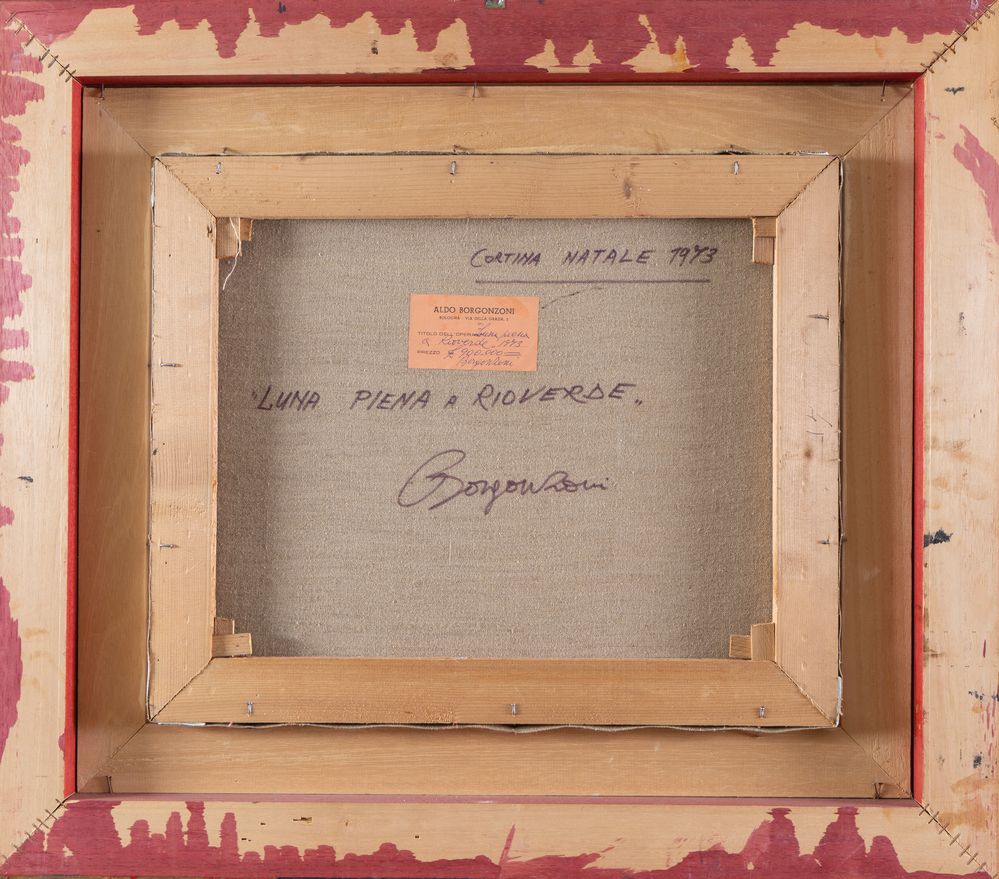 CORTINA NATALE 1973
ALDO BORGONZONI
BOLOGNA - VIA DELLA GRADA, 2
TITOLO DELL'OPERA Luna piena
a Rioverde - 1973
PREZZO £ 900.000 =
Borgonzoni
"LUNA PIENA A RIOVERDE"
Borgonzoni